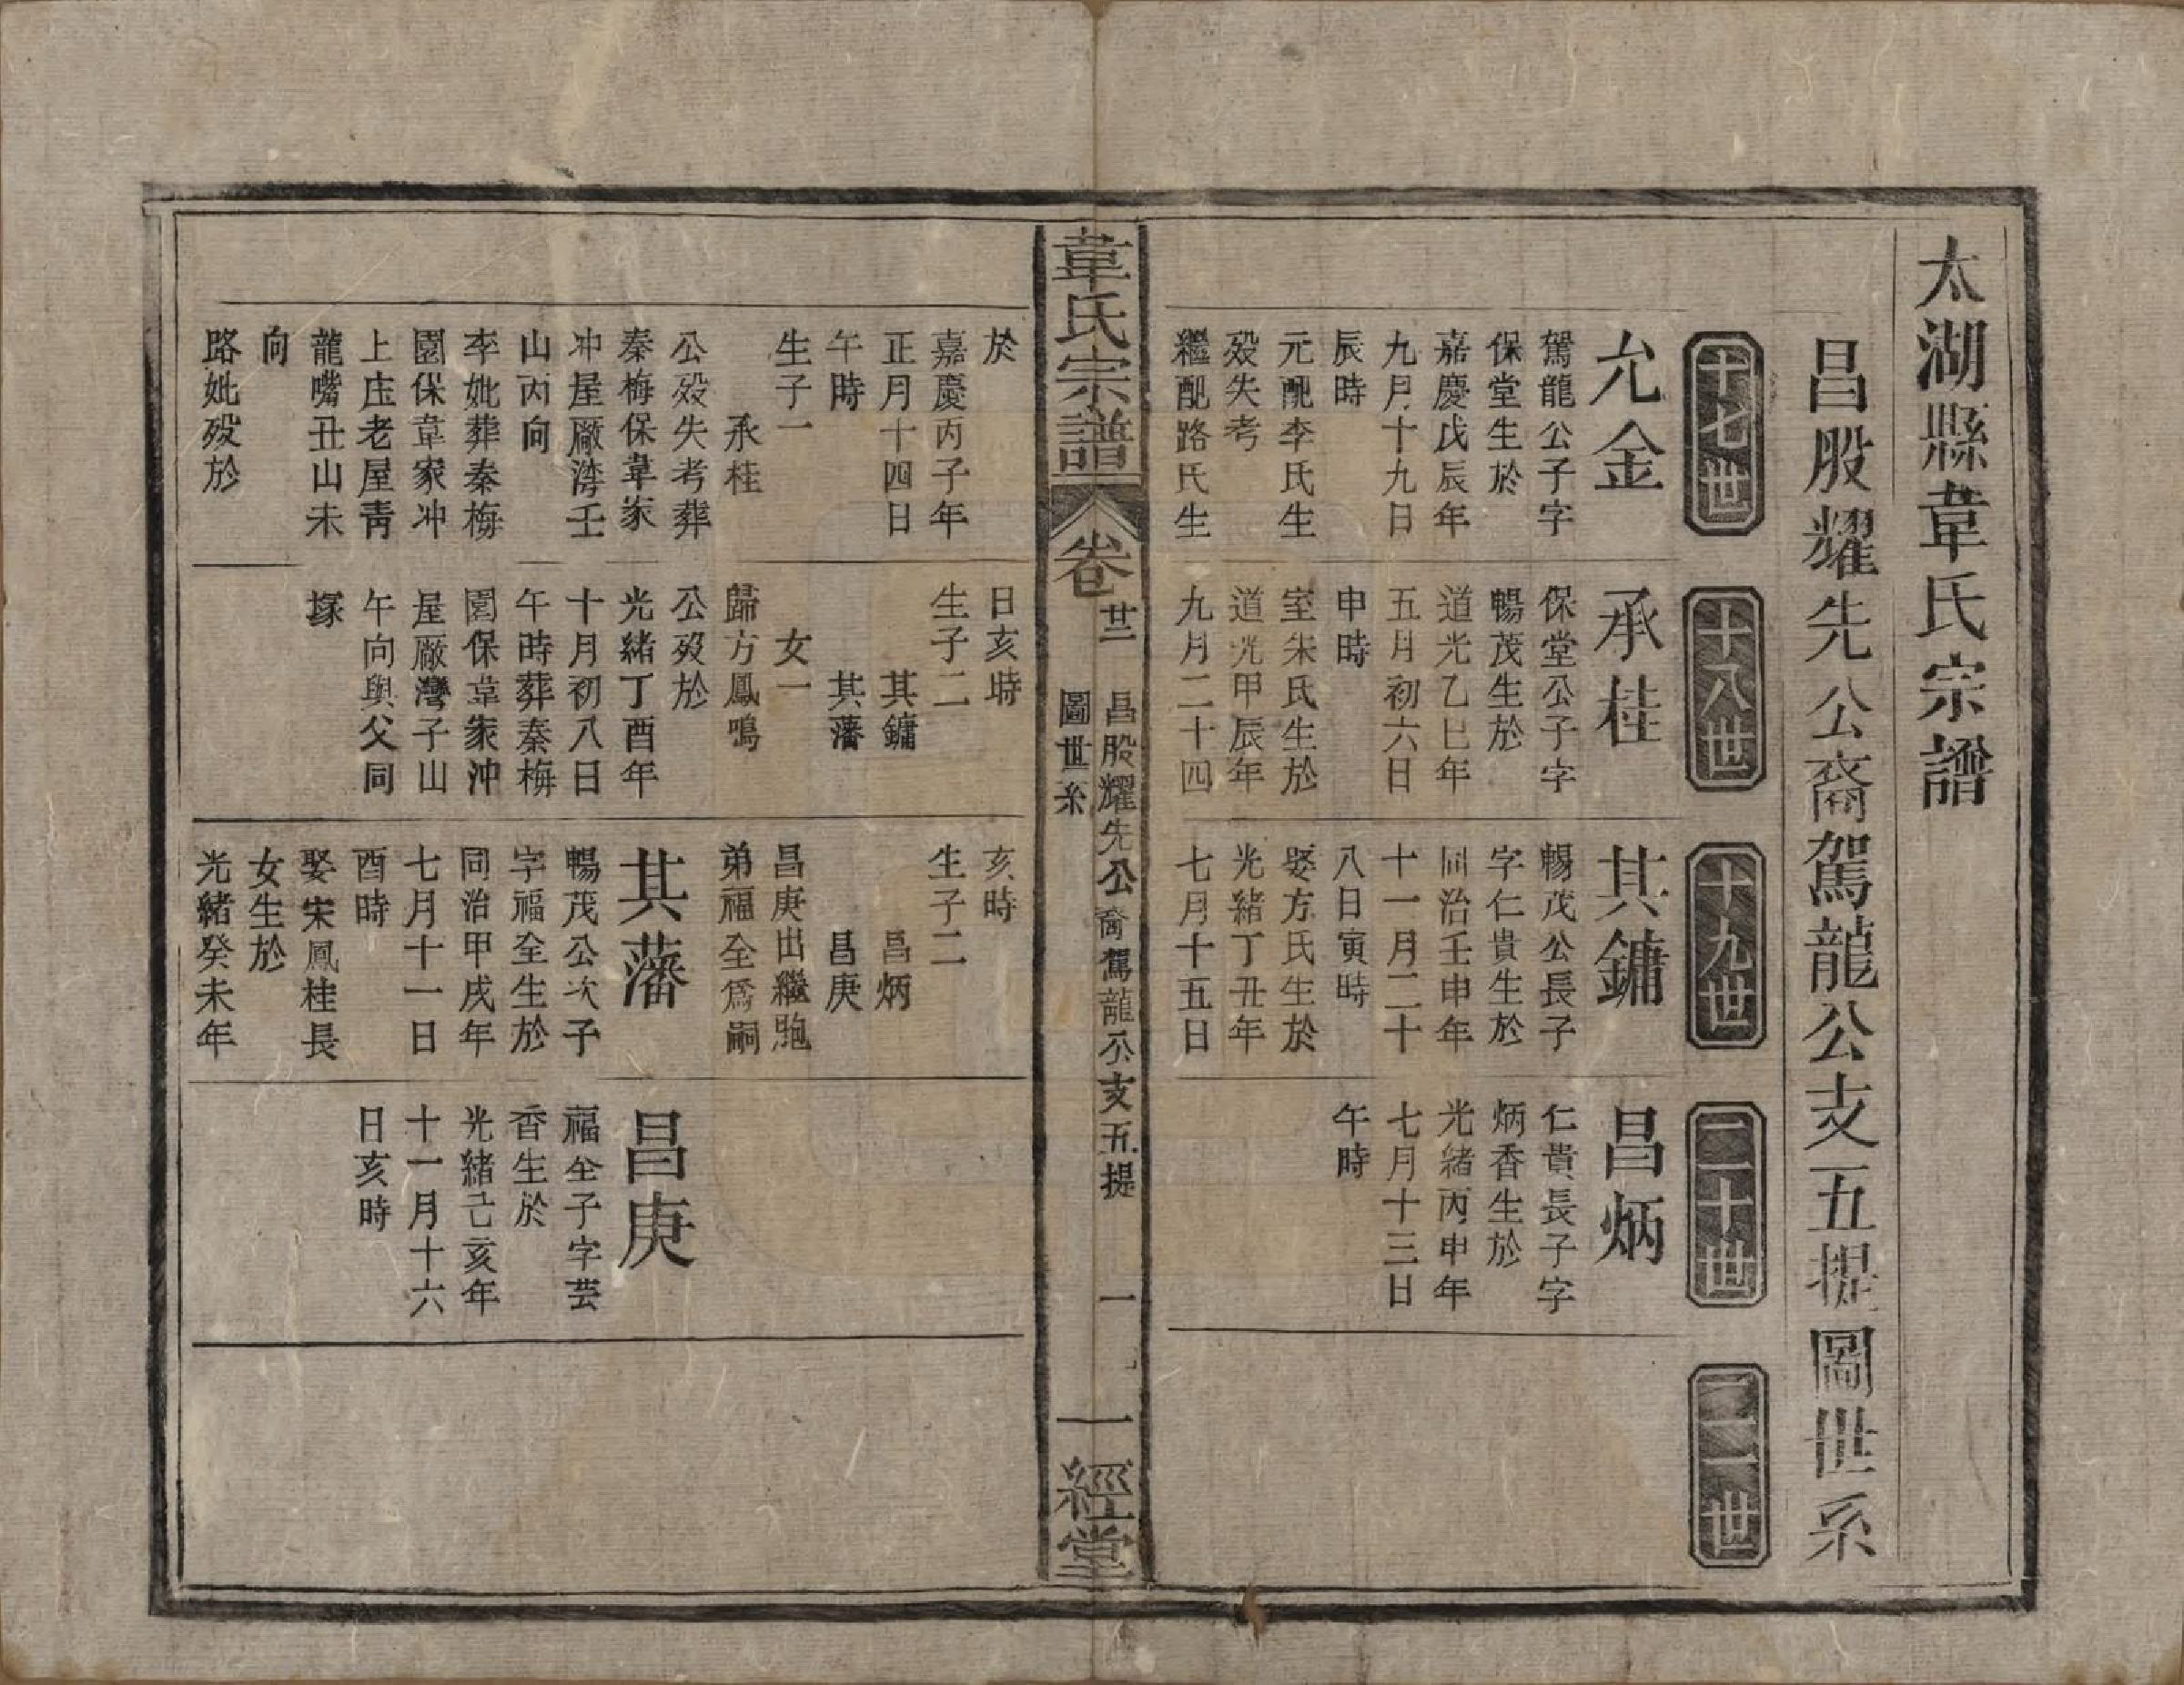 太湖縣韋氏宗譜
昌股耀先公裔駕龍公支五提圖世系
十七世
十八世
十九世
二十世
二一世
允金
駕龍公子字
保堂生於
嘉慶戊辰年
九月十九日
辰時
元配李氏生
歿失考
繼配路氏生
承桂
保堂公子字
暢茂生於
道光乙巳年
五月初六日
申時
室朱氏生於
道光甲辰年
九月二十四
其鏞
暢茂公長子
字仁貴生於
同治壬申年
十一月二十
八日寅時
娶方氏生於
光緒丁丑年
七月十五日
昌炳
仁貴長子字
炳香生於
光緒丙申年
七月十三日
午時
韋氏宗譜
卷
廿二
昌股耀先公裔駕龍公支五提
圖世系
一
一經堂
於
嘉慶丙子年
正月十四日
午時
生子一
承桂
公歿失考葬
秦梅保韋家
冲屋廠湾壬
山丙向
李妣葬秦梅
園保韋家冲
上庄老屋靑
龍嘴丑山未
向
路妣歿於
日亥時
生子二
其鏞
其藩
女一
歸方鳳鳴
公歿於
光緒丁酉年
十月初八日
午時葬秦梅
園保韋家沖
屋廠灣子山
午向與父同
塚
亥時
生子二
昌炳
昌庚
昌庚出繼胞
弟福全爲嗣
其藩
暢茂公次子
字福全生於
同治甲戌年
七月十一日
酉時
娶宋鳳桂長
女生於
光緒癸未年
昌庚
福全子字芸
香生於
光緒己亥年
十一月十六
日亥時